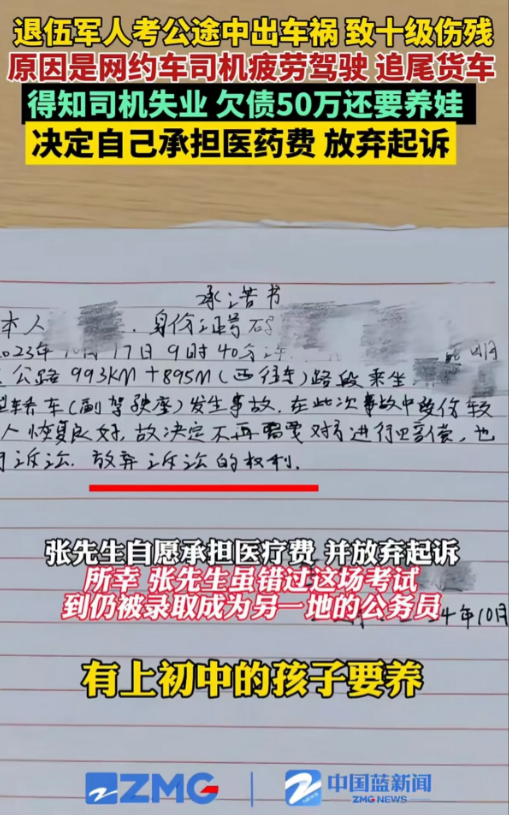 退伍军人考公途中出车祸 致十级伤残
原因是网约车司机疲劳驾驶 追尾货车
得知司机失业 欠债50万还要养娃
决定自己承担医药费 放弃起诉
承诺书
本人 身份证号码
2023年 月17日9时40分 昆明
公路993KM+895M(西往东)路段乘坐
轿车(副驾驶座)发生事故.在此次事故中致伤较
人恢复良好.故决定不再需要对方进行赔偿,也
诉讼.放弃诉讼的权利.
张先生自愿承担医疗费 并放弃起诉
所幸 张先生虽错过这场考试
到仍被录取成为另一地的公务员
年10月
有上初中的孩子要养
ZMG
中国蓝新闻
ZMG NEWS